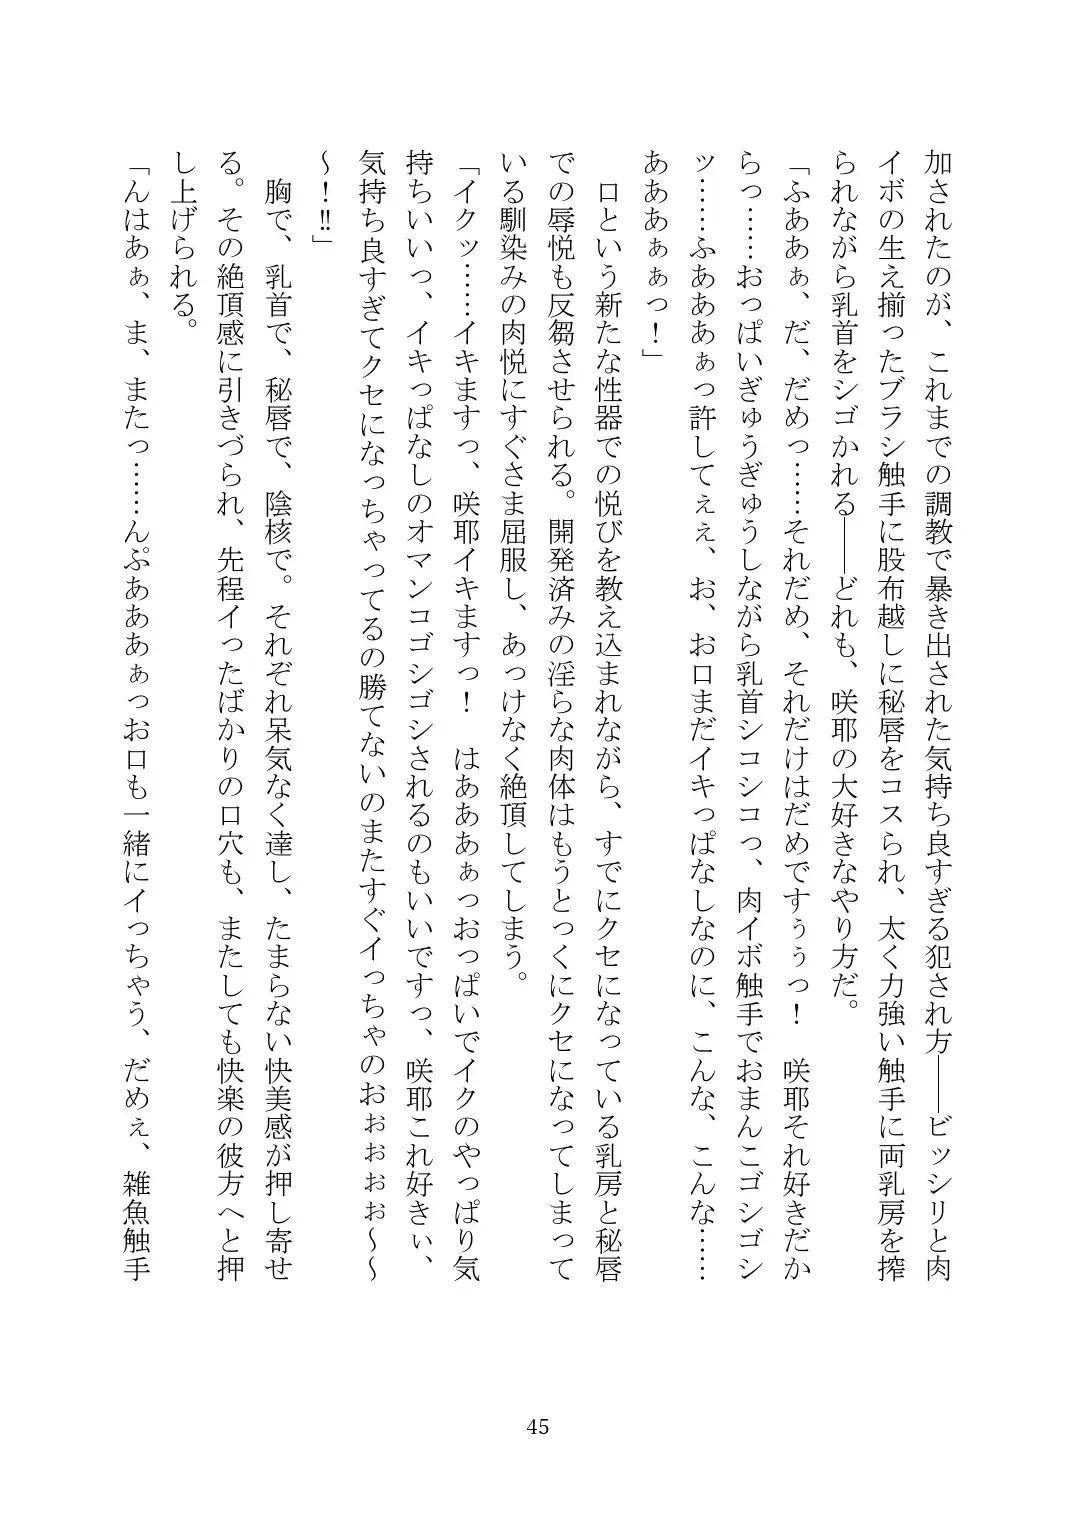 加されたのが、これまでの調教で暴き出された気持ち良すぎる犯され方――ビッシリと肉
イボの生え揃ったブラシ触手に股布越しに秘唇をコスられ、太く力強い触手に両乳房を搾
られながら乳首をシゴかれる――どれも、咲耶の大好きなやり方だ。
「ふああぁ、だ、だめっ……それだめ、それだけはだめですぅぅっ！　咲耶それ好きだか
らっ……おっぱいぎゅうぎゅうしながら乳首シコシコっ、肉イボ触手でおまんこゴシゴシ
ッ……ふあああぁっ許してぇぇ、お、お口まだイキっぱなしなのに、こんな、こんな……
あああぁぁっ！」
　口という新たな性器での悦びを教え込まれながら、すでにクセになっている乳房と秘唇
での辱悦も反芻させられる。開発済みの淫らな肉体はもうとっくにクセになってしまって
いる馴染みの肉悦にすぐさま屈服し、あっけなく絶頂してしまう。
「イクッ……イキますっ、咲耶イキますっ！　はあああぁっおっぱいでイクのやっぱり気
持ちいいっ、イキっぱなしのオマンコゴシゴシされるのもいいですっ、咲耶これ好きぃ、
気持ち良すぎてクセになっちゃってるの勝てないのまたすぐイっちゃのおぉぉぉぉ～～
～！‼」
　胸で、乳首で、秘唇で、陰核で。それぞれ呆気なく達し、たまらない快美感が押し寄せ
る。その絶頂感に引きづられ、先程イったばかりの口穴も、またしても快楽の彼方へと押
し上げられる。
「んはあぁ、ま、またっ……んぷあああぁっお口も一緒にイっちゃう、だめぇ、雑魚触手
45